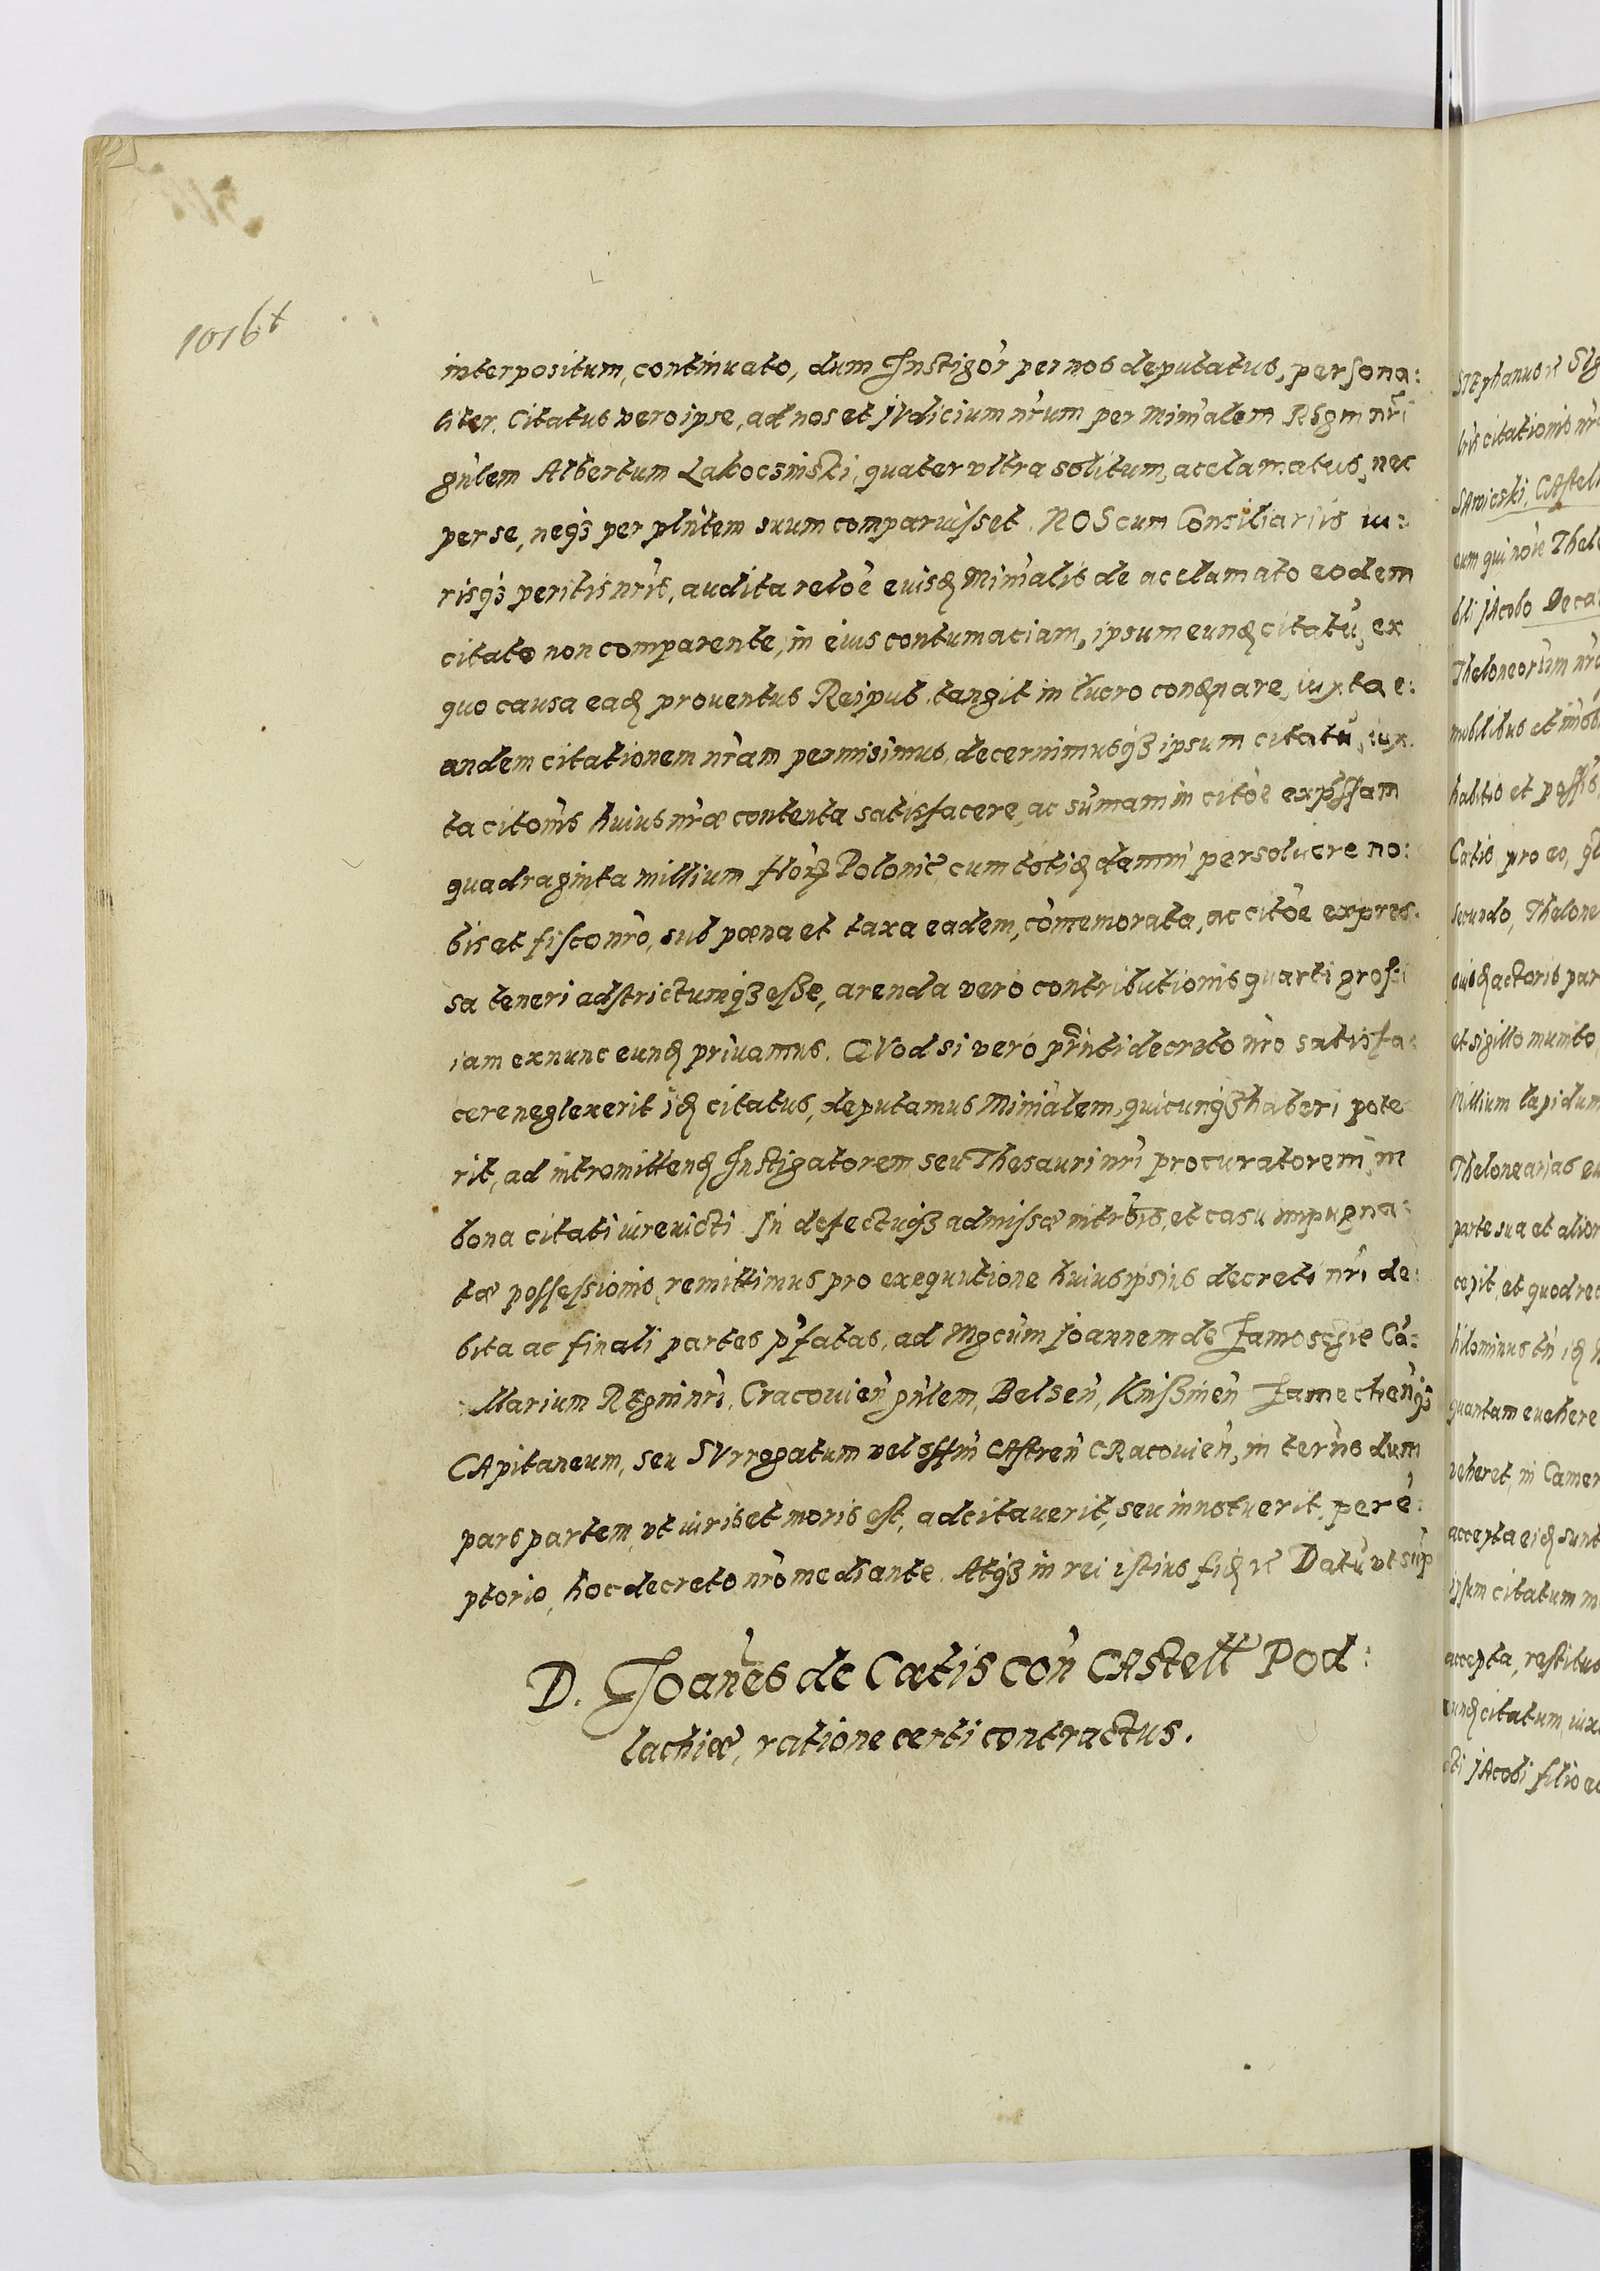 1016t
interpositum, continuato, dum Instigor per nos deputatus, persona:
liter. Citatus vero ipse, ad nos et jVdicium nrum per minalem Regm nri
gnlem Albertum Lakocsinski, quater vltra solitum, acclamatus, nec
per se, neqз per plntem suum comparuisset. NOS cum Consiliariis iu:
risqз peritis nris, audita reloe euisđ Minialis de acclamato eodem
citato non comparente, in eius contumaciam, ipsum eunđ citatũ, ex
quo causa eađ prouentus Reipub. tangit in lucro conđnare, iuxta e:
andem citationem nram permisimus, decernimusqз ipsum citatũ, iux:
ta citonis huius nræ contenta satisfacere, ac sumam in citoe expssam
quadraginta millium flor Polonic, cum totiđ damni persoluere no:
bis et fisco nro, sub pœna et taxa eadem, comemorata, ac citoe expres:
sa teneri adstrictumqз esse, arenda vero contributionis quarti grossi
iam ex nunc eunđ priuamus. QVod si vero pnti decreto nro satisfa:
cere neglexerit iđ citatus, deputamus Minialem, quicunqз haberi pote
rit, ad intromittenđ Instigatorem seu Thesauri nri procuratorem, in
bona citati iure uicti. In defectuqз admissæ intronis, et casu impugna:
tæ possessionis, remittimus pro exequutione huius ipsius decreti nri de:
bita ac finali partes pfatas, ad Mgcum Joannem de Zamosczie Ca:
:llarium Regni nri, Cracouien gnlem, Belsen, Knißinen Zamechenqз
CApitaneum, seu SVrrogatum vel offm CAstren CRacouien, in ternis dum
pars partem, vt iuris et moris est, adcitauerit, seu innotuerit, pere:
ptorio, hoc decreto nro mediante. Atqз in rei istius fiđ etc Datũ vt sup
D. Joanes de Cœtis con CAstell Pod:
lachiæ, ratione certi contractus.
STEphanus etc
citationis
SAnicski, CAstel
eum qui
bli jAcobo Deca
Theloneorum
nobilibus et
habitis et
Catis pro eo,
secundo, Thelone
euisđ actoris par
et sigillo munito,
Millium lapidum
Thelonearias
parte sua et alior
cepit, et quod
hilominus tn iđ
quantam euehere
veheret, in Camer
accepta eiđ sunt
ipsum citatum
accepta, restitue
eunđ citatum, iux
jAcobi filio